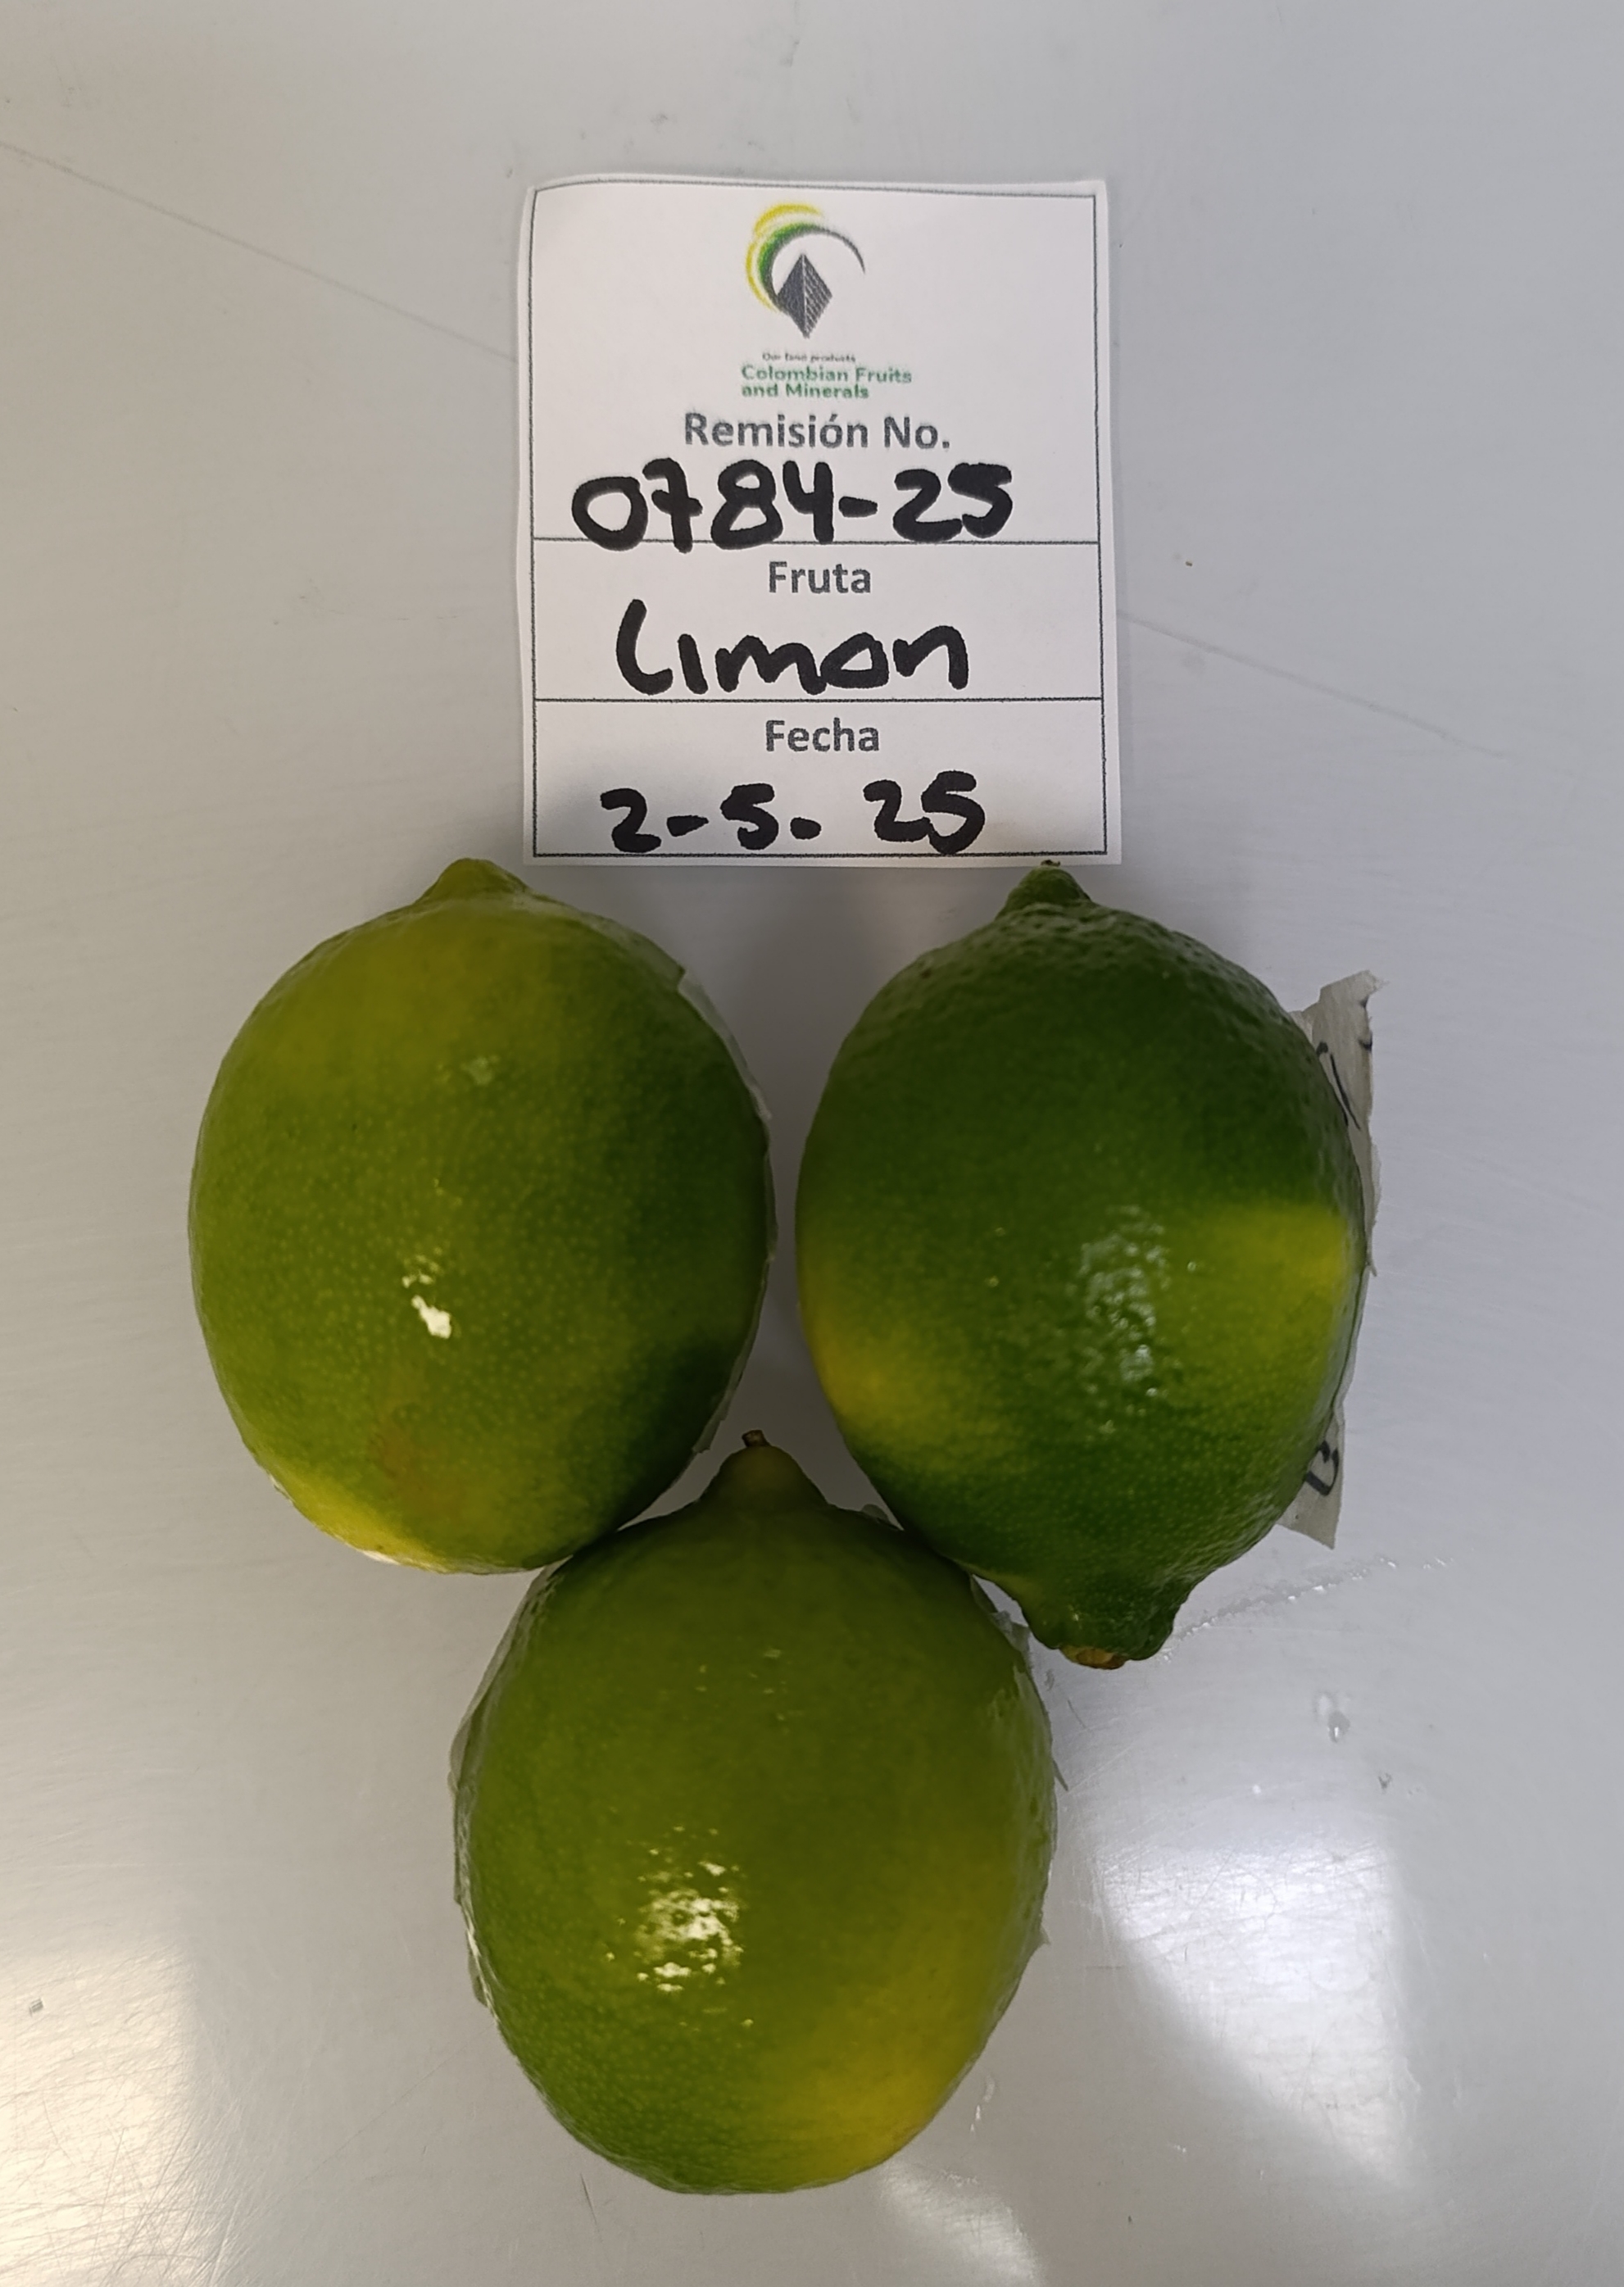 Our land products
Colombian Fruits
and Minerals
Remisión No.
0784-25
Fruta
Limon
Fecha
2-5-25